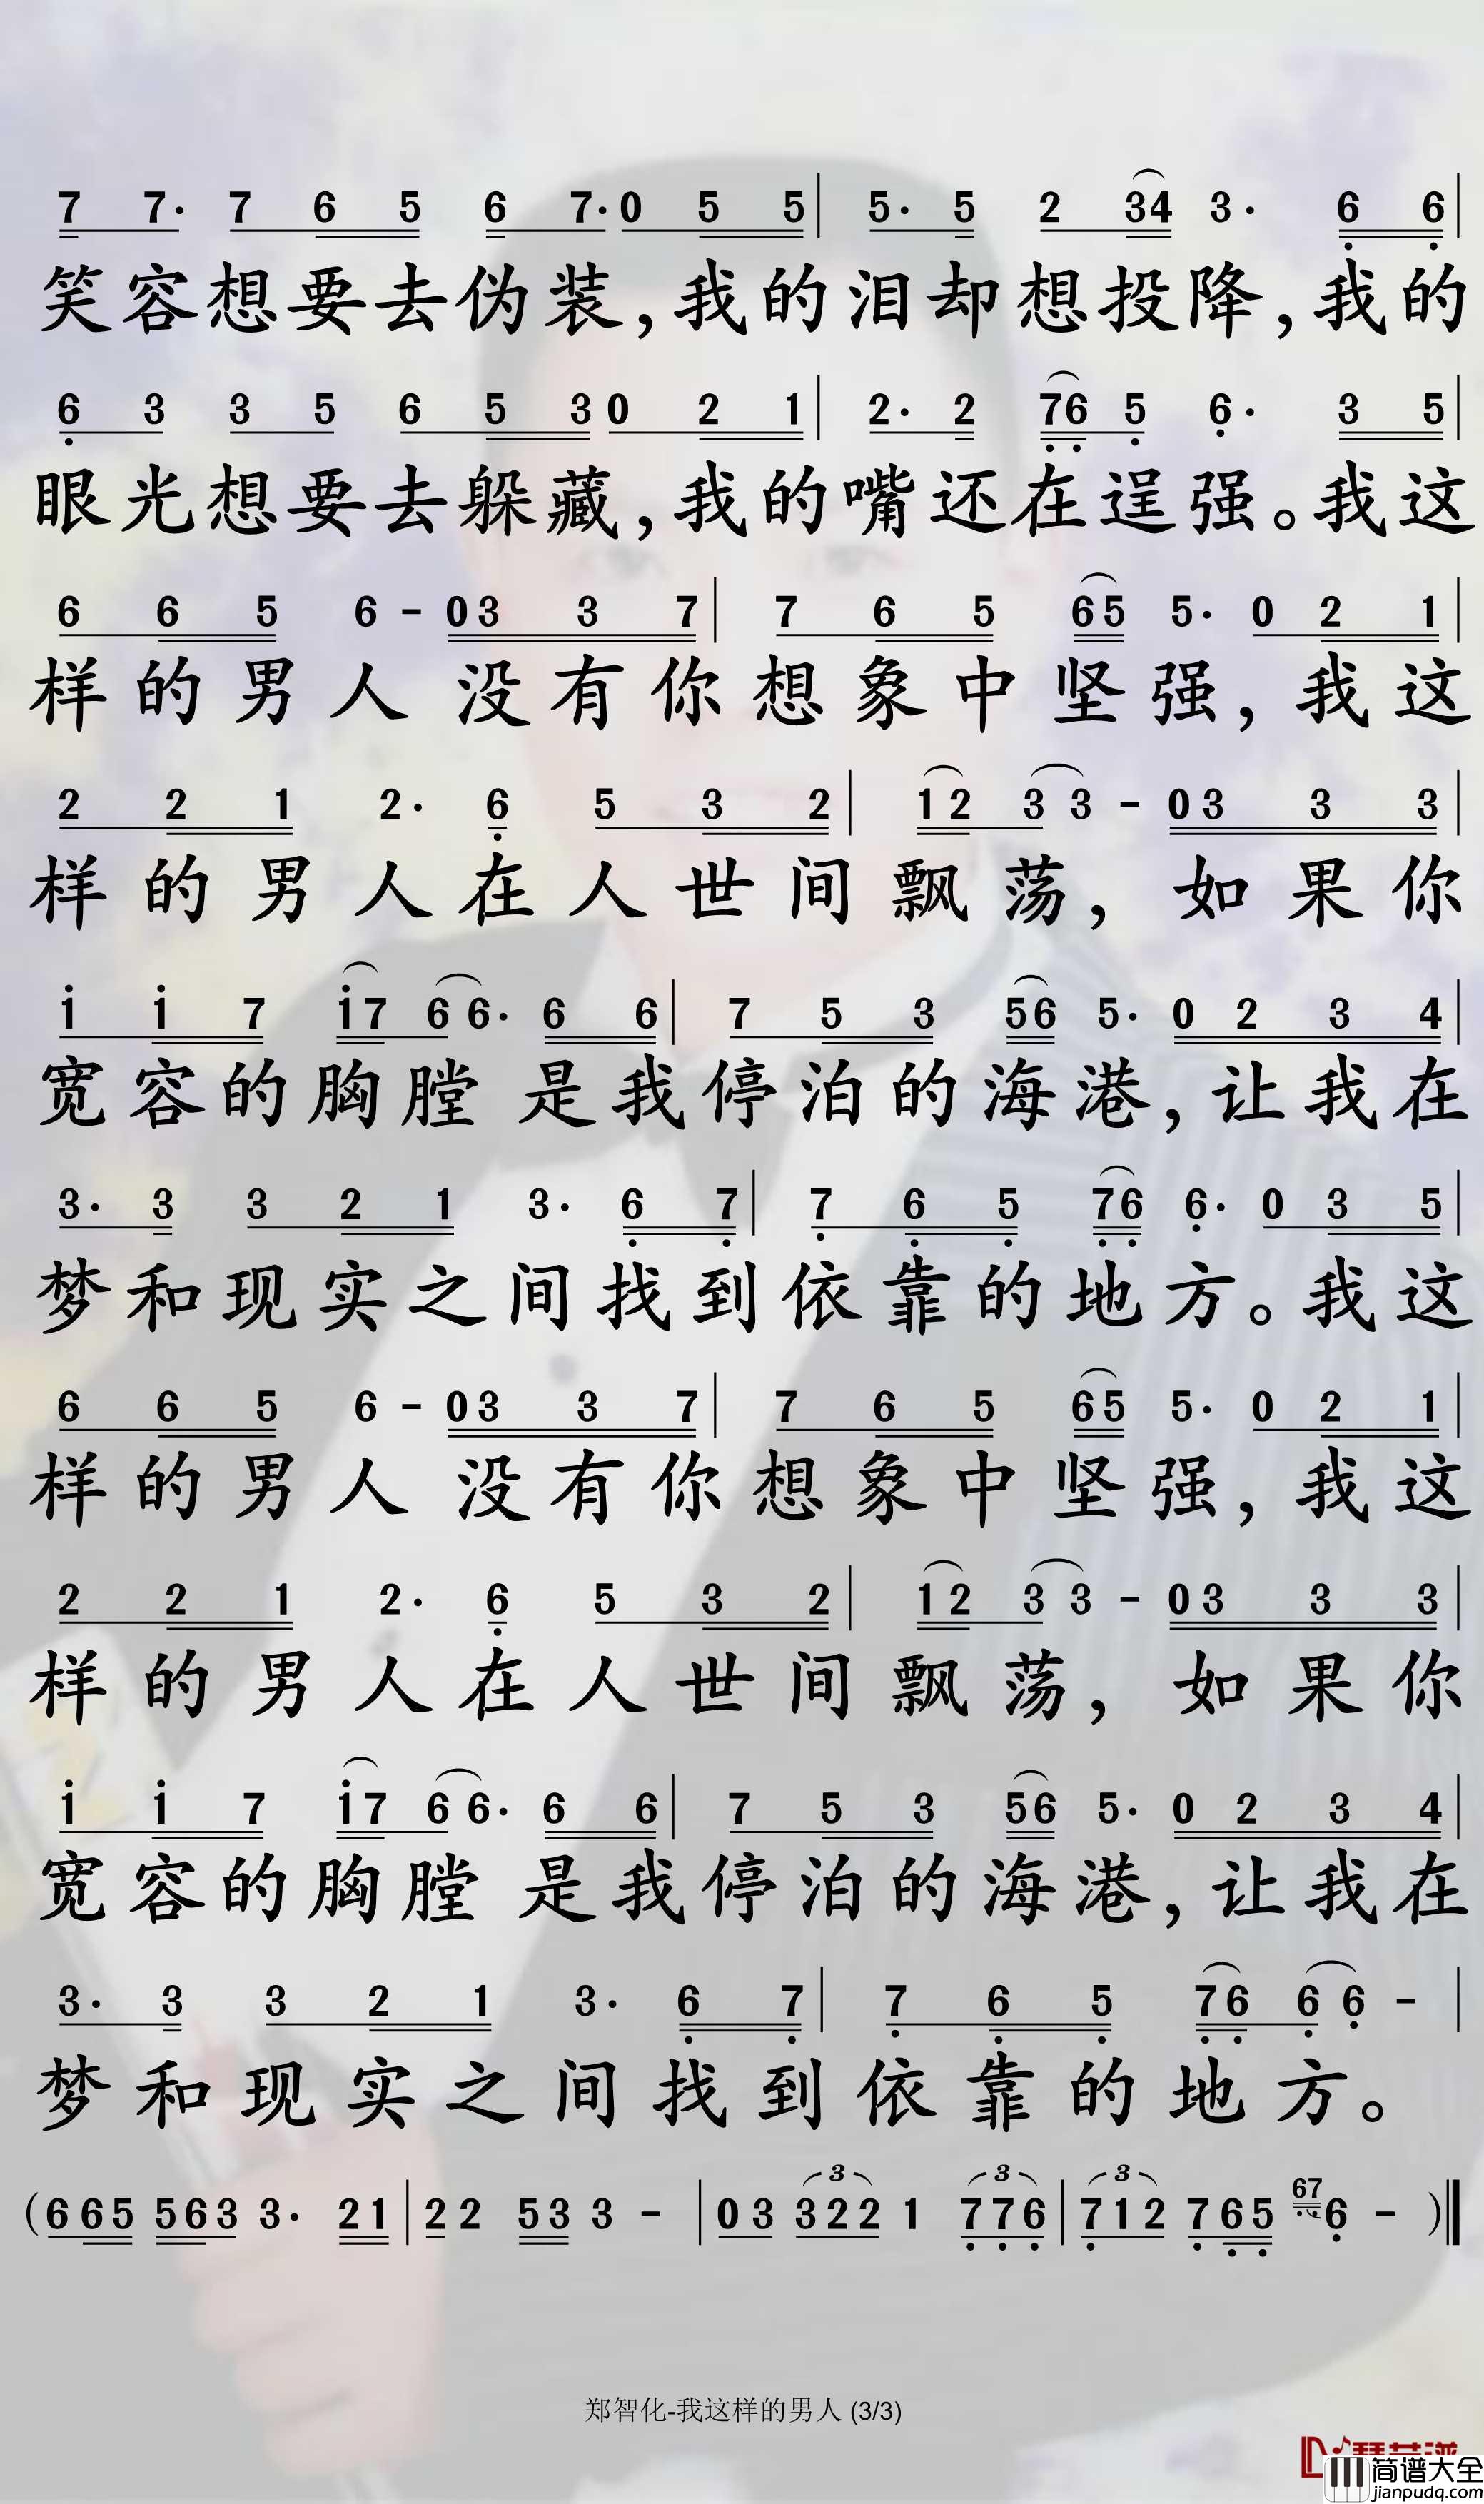 7 7· 7 6 5 6 7· 0 5 5 | 5· 5 2 34 3· 6 6 |
笑容想要去伪装，我的泪却想投降，我的
6 3 3 5 6 5 3 0 2 1 | 2· 2 76 5 6· 3 5 |
眼光想要去躲藏，我的嘴还在逞强。我这
6 6 5 6 - 0 3 3 7 | 7 6 5 65 5· 0 2 1 |
样的男人没有你想象中坚强，我这
2 2 1 2· 6 5 3 2 | 12 3 3 - 0 3 3 3 |
样的男人在人世间飘荡，如果你
1 1 7 17 6 6· 6 6 | 7 5 3 56 5· 0 2 3 4 |
宽容的胸膛是我停泊的海港，让我在
3· 3 3 2 1 3· 6 7 | 7 6 5 76 6· 0 3 5 |
梦和现实之间找到依靠的地方。我这
6 6 5 6 - 0 3 3 7 | 7 6 5 65 5· 0 2 1 |
样的男人没有你想象中坚强，我这
2 2 1 2· 6 5 3 2 | 12 3 3 - 0 3 3 3 |
样的男人在人世间飘荡，如果你
1 1 7 17 6 6· 6 6 | 7 5 3 56 5· 0 2 3 4 |
宽容的胸膛是我停泊的海港，让我在
3· 3 3 2 1 3· 6 7 | 7 6 5 76 6 6 - |
梦和现实之间找到依靠的地方。
(6 65 563 3· 21 | 2 2 53 3 - | 03 3 322 1 3 776 | 3 712 765 67 6 - )
郑智化-我这样的男人 (3/3)
简谱大全
jianpudq.com